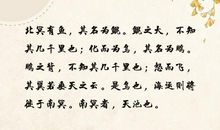 北冥有鱼，其名为鲲。鲲之大，不知
其几千里也；化而为鸟，其名为鹏。
鹏之背，不知其几千里也；怒而飞，
其翼若垂天之云。是鸟也，海运则将
徙于南冥。南冥者，天池也。